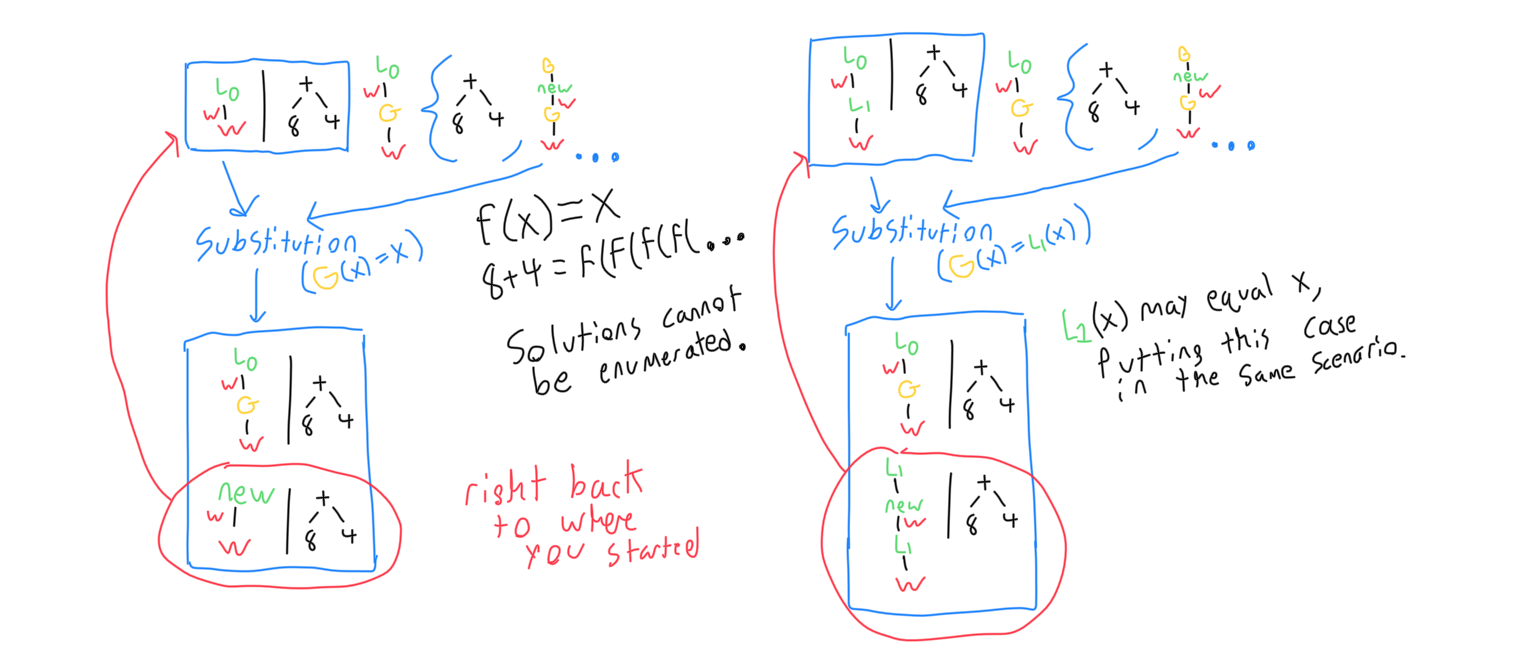 L0
w
W
+
8 4
L0
w
G
W
+
8 4
G
new
w
G
W
...
Substitution
(G(x)=x)
f(x)=x
8+4=f(f(f(f(...
Solutions cannot
be enumerated.
L0
w
G
W
+
8 4
new
w
W
+
8 4
right back
to where
you started
L0
w
L1
W
+
8 4
L0
w
G
W
+
8 4
G
new
w
G
W
...
Substitution
(G(x)=L1(x))
L1(x) may equal x,
putting this case
in the same scenario.
L0
w
G
W
+
8 4
L1
new
w
L1
W
+
8 4